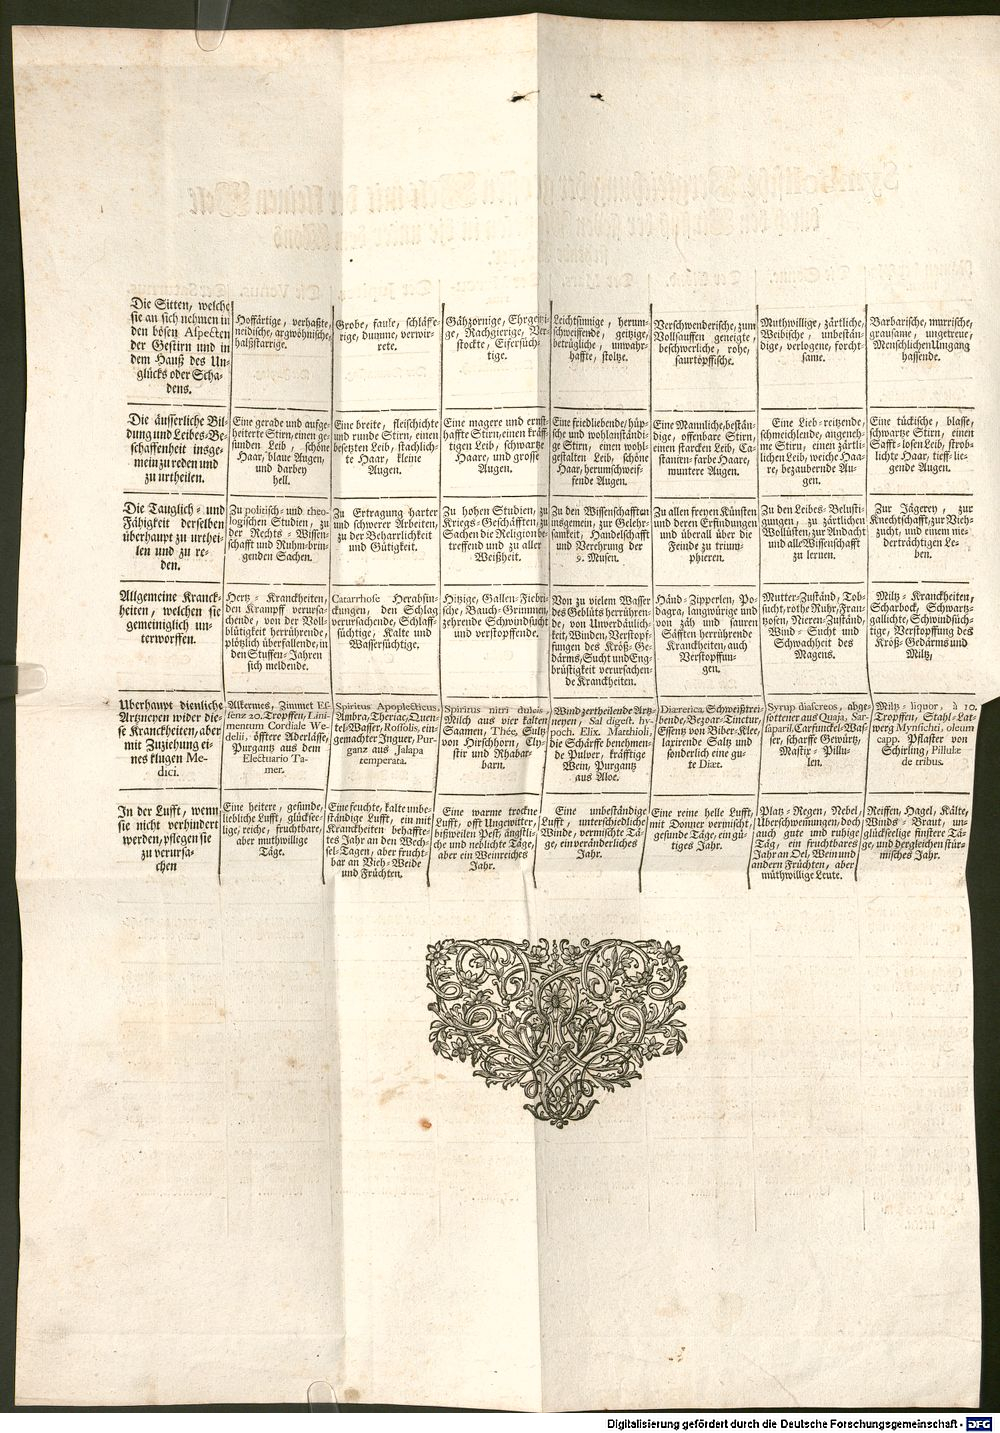 Die Sitten, welche
sie an sich nehmen in
den bösen Aspecten
der Gestirn und in
dem Hauß des Un-
glücks oder Scha-
dens.
Hoffärtige, verhaßte,
neidische, argwöhnische,
halßstarrige.
Grobe, faule, schläffe-
rige, dumme, verwir-
rete.
Gähzornige, Ehrgei-
ge, Rachgierige, Ver-
stockte, Eifersüch-
tige.
Leichtsinnige, herum-
schweiffende, geitzige,
betrügliche, unwahr-
haffte, stoltze.
Verschwenderische, zum
Vollsauffen geneigte,
beschwerliche, rohe,
saurtöpffische.
Muthwillige, zärtliche,
Weibische, unbestän-
dige, verlogene, forcht-
same.
Barbarische, murrische,
grausame, ungetreue,
Menschlichen Umgang
hassende.
Die äusserliche Bil-
dung und Leibes-Be-
schaffenheit insge-
mein zu reden und
zu urtheilen.
Eine gerade und aufge-
heiterte Stirn, einen ge-
sunden Leib, schöne
Haar, blaue Augen,
und darbey
hell.
Eine breite, fleischichte
und runde Stirn, einen
besetzten Leib, stachlich-
te Haar, kleine
Augen.
Eine magere und ernst-
haffte Stirn, einen kräff-
tigen Leib, schwartze
Haare, und grosse
Augen.
Eine friedliebende/ hüp-
sche und wohlanständi-
ge Stirn, einen wohl-
gestalten Leib, schöne
Haar, herumschweif-
fende Augen.
Eine Mannliche, bestän-
dige, offenbare Stirn,
einen starcken Leib, Ca-
stanien-farbe Haare,
muntere Augen.
Eine Lieb-reitzende,
schmeichlende, angeneh-
me Stirn, einen zärtli-
chen Leib, weiche Haa-
re, bezaubernde Au-
gen.
Eine tückische, blasse,
schwartze Stirn, einen
Safft-losen Leib, strob-
lichte Haar, tieff-lie-
gende Augen.
Die Tauglich- und
Fähigkeit derselben
überhaupt zu urthei-
len und zu re-
den.
Zu politisch- und theo-
logischen Studien, zu
der Rechts-Wissen-
schafft und Ruhm-brin-
genden Sachen.
Zu Ertragung harter
und schwerer Arbeiten,
zu der Beharrlichkeit
und Gütigkeit.
Zu hohen Studien, zu
Kriegs-Geschäfften, zu
Sachen die Religion be-
treffend und zu aller
Weißheit.
Zu den Wissenschafften
insgemein, zur Gelehr-
samkeit, Handelschafft
und Verehrung der
9. Musen.
Zu allen freyen Künsten
und deren Erfindungen
und überall über die
Feinde zu trium-
phieren.
Zu den Leibes-Belusti-
gungen, zu zärtlichen
Wollüsten, zur Andacht
und alle Wissenschafft
zu lernen.
Zur Jägerey, zur
Knechtschafft, zur Vieh-
zucht, und einem nie-
derträchtigen Le-
ben.
Allgemeine Kranck-
heiten, welchen sie
gemeiniglich un-
terworffen.
Hertz-Kranckheiten,
den Krampff verursa-
chende, von der Voll-
blütigkeit herrührende,
plötzlich überfallende, in
den Stuffen-Jahren
sich meldende.
Catarrhose Herabsin-
ckungen, den Schlag
verursachende, Schlaff-
süchtige, Kalte und
Wassersüchtige.
Hitzige, Gallen-Fiebri-
sche, Bauch-Grimmen,
zehrende Schwindsucht
und verstopffende.
Von zu vielem Wasser
des Geblüts herrühren-
de, von Unverdäulich-
keit, Winden, Verstopf-
fungen des Kröß-Ge-
därms, Sucht und Eng-
brüstigkeit verursachen-
de Kranckheiten.
Händ-Zipperlen, Po-
dagra, langwürige und
von zäh und sauren
Säfften herrührende
Kranckheiten, auch
Verstopffun-
gen.
Mutter-Zustand, Tob-
sucht, rothe Ruhr, Fran-
tzosen, Nieren-Zustand,
Wind-Sucht und
Schwachheit des
Magens.
Miltz-Kranckheiten,
Scharbock, Schwartz-
gallichte, Schwindsüch-
tige, Verstopffung des
Kröß-Gedärms und
Miltz,
Uberhaupt dienliche
Artzneyen wider die-
se Kranckheiten, aber
mit Zuziehung ei-
nes klugen Me-
dici.
Alkermes, Zimmet Es-
senz 20. Tropffen, Lini-
mentum Cordiale We-
delii, öfftere Aderlässe,
Purgantz aus dem
Electuario Ta-
mer.
Spiritus Apoplecticus,
Ambra, Theriac, Quen-
tel-Wasser, Rossolis, ein-
gemachter Ingber, Pur-
gantz aus Jalapa
temperata.
Spiritus nitri dulcis,
Milch aus vier kalten
Saamen, Thée, Sultz
von Hirschhorn, Cly-
stir und Rhabar-
barn.
Wind zertheilende Artz-
neyen, Sal digest. hy-
poch. Elix. Matthioli,
die Schärffe benehmen-
de Pulver, kräfftige
Wein, Purgantz
aus Aloe.
Diæretica, Schweißtrei-
bende, Bezoar-Tinctur,
Essentz von Biber-Klee,
laxirende Saltz und
sonderlich eine gu-
te Diæt.
Syrup diascreos, abge-
sottener aus Quaja, Sar-
saparil, Carfunckel-Was-
ser, scharffe Gewürtz,
Mastix-Pillu-
len.
Miltz-liquor, à 10.
Tropffen, Stahl-Lat-
werg Mynsichti, oleum
capp. Pflaster von
Schirling, Pillulæ
de tribus.
In der Lufft, wenn
sie nicht verhindert
werden, pflegen sie
zu verursa-
chen
Eine heitere, gesunde,
liebliche Lufft, glücksee-
lige, reiche, fruchtbare,
aber muthwillige
Täge.
Eine feuchte, kalte unbe-
ständige Lufft, ein mit
Kranckheiten behaffte-
tes Jahr an den Wech-
sel-Tagen, aber frucht-
bar an Vieh-Weide
und Früchten.
Eine warme trockne
Lufft, offt Ungewitter,
bißweilen Pest, ängstli-
che und neblichte Täge,
aber ein Weinreiches
Jahr.
Eine unbeständige
Lufft, unterschiedliche
Winde, vermischte Tä-
ge, ein veränderliches
Jahr.
Eine reine helle Lufft,
mit Donner vermischt,
gesunde Täge, ein gü-
tiges Jahr.
Platz-Regen, Nebel,
Uberschwemungen, doch
auch gute und ruhige
Täg, ein fruchtbares
Jahr an Oel, Wein und
andern Früchten, aber
muthwillige Leute.
Reiffen, Hagel, Kälte,
Winds-Braut, un-
glückseelige finstere Tä-
ge, und dergleichen stür-
misches Jahr.
Digitalisierung gefördert durch die Deutsche Forschungsgemeinschaft - DFG